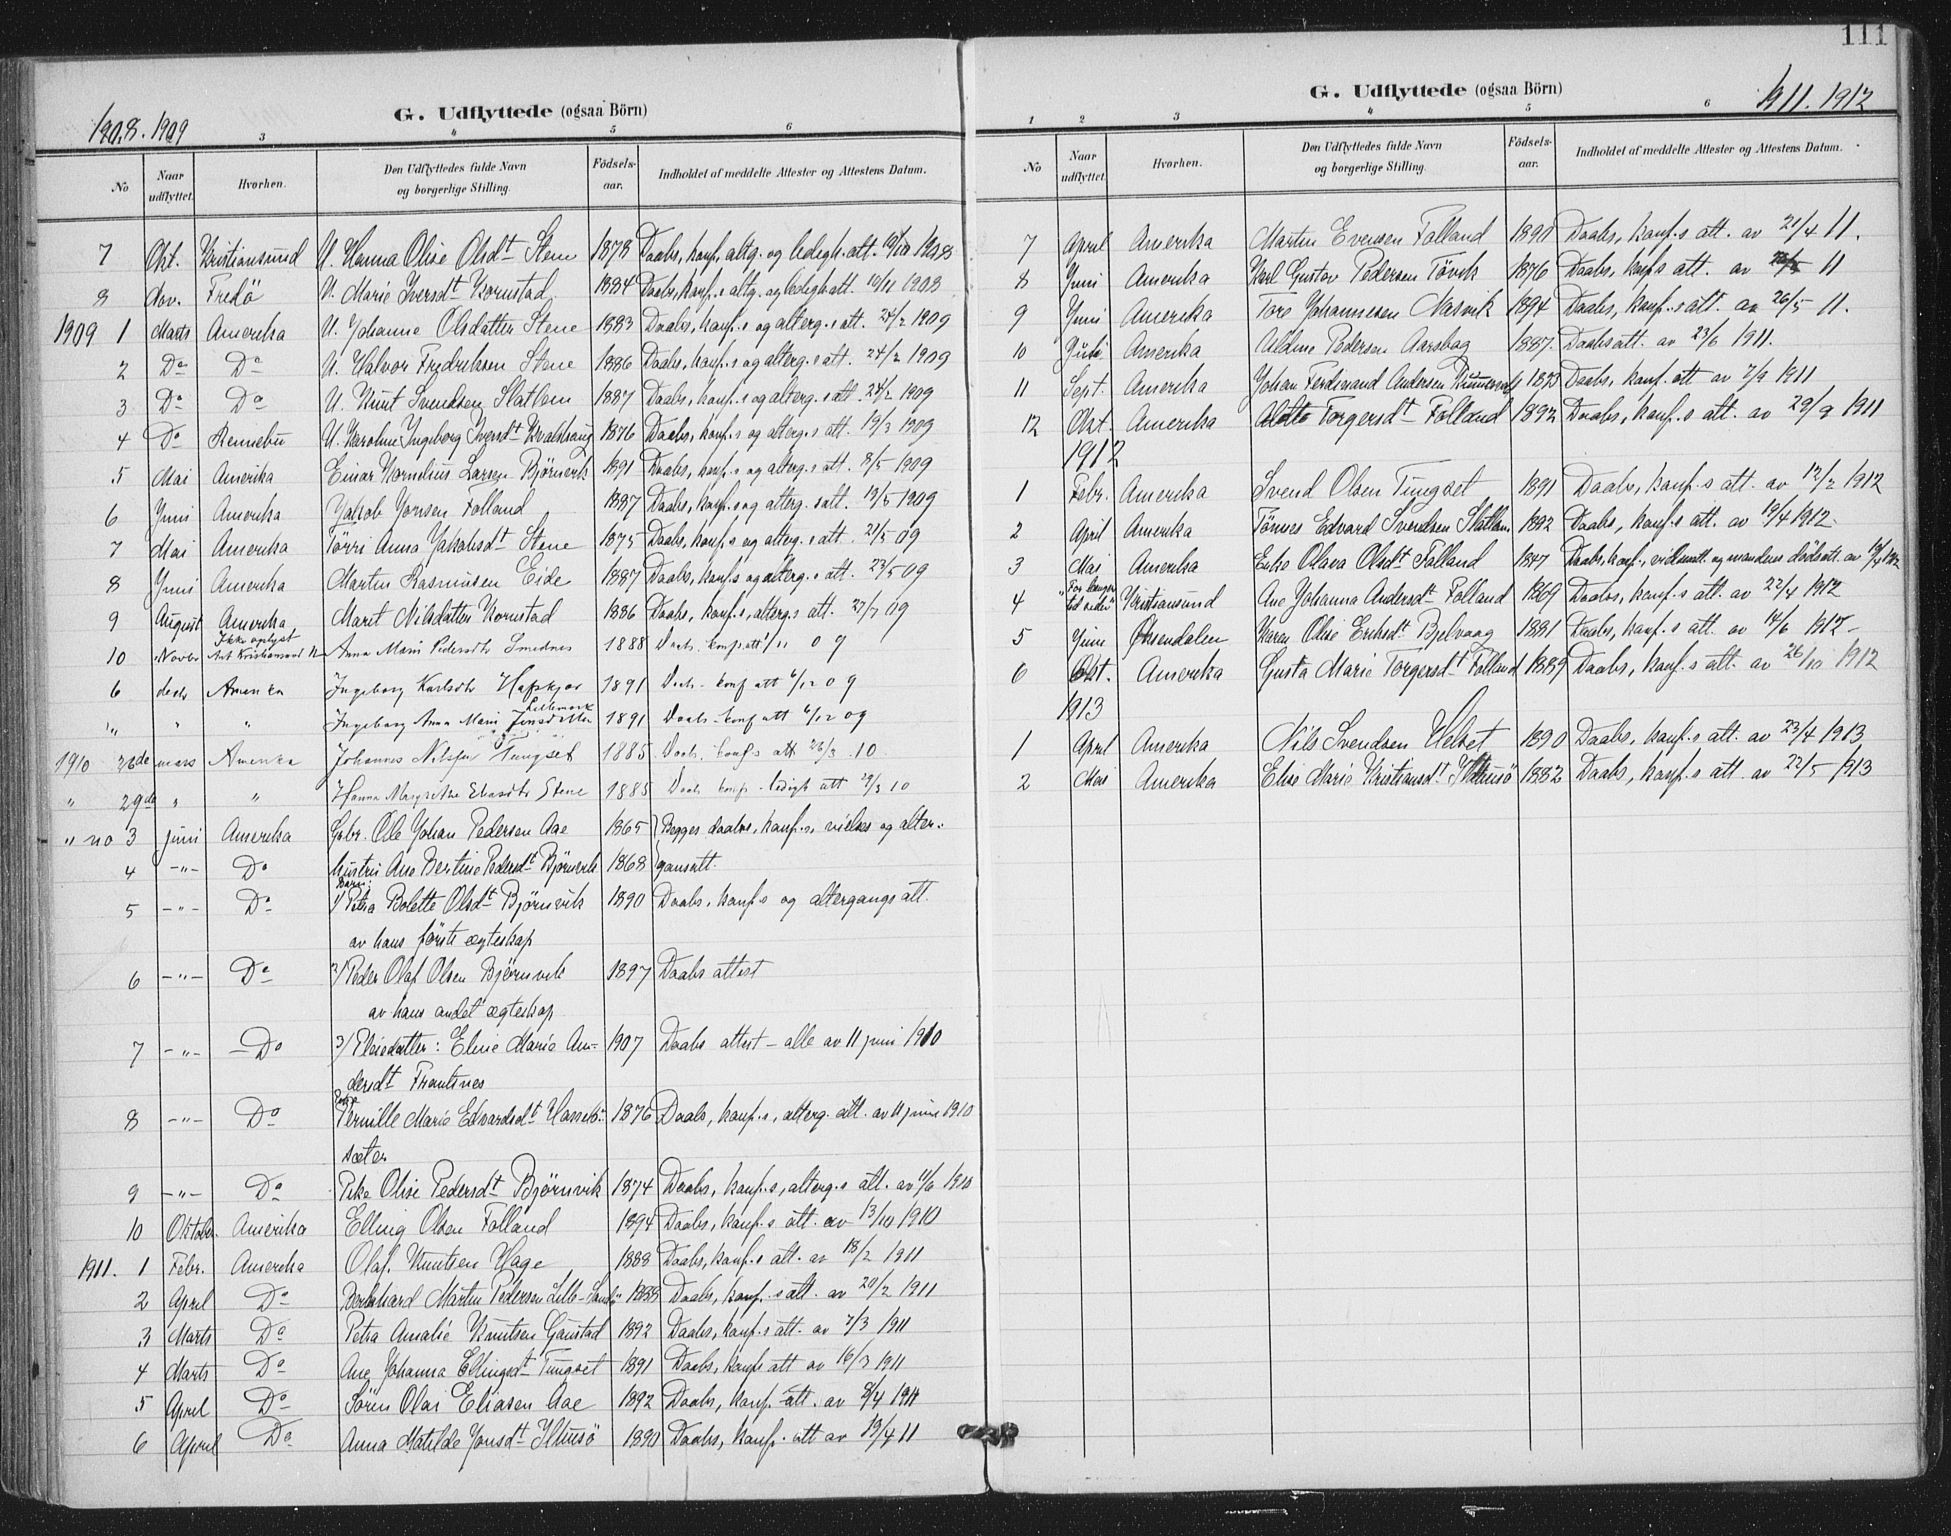 1908. 1909
G. Udflyttede (ogsaa Börn)
3 4 5 6
No Naar udflyttet. Hvorhen. Den Udflyttedes fulde Navn og borgerlige Stilling. Födsels-aar. Indholdet af meddelte Attester og Attestens Datum.
7 Okt. Kristiansund U. Hanna Olise Olsdt Stene 1878 Daabs, konf. altg. og ledigh. att. 10/10 1908
8 Nov. Fredö U. Marie Iversdt Kornstad 1884 Daabs, konf.s altg. og ledigh att. 10/11 1908
1909 1 Marts Amerika U. Johanne Olsdatter Stene 1883 Daabs, konf.s og alterg.s att. 24/2 1909
2 Do Do U. Halvor Fredriksen Stene 1886 Daabs, konf.s og alterg.s att. 24/2 1909
3 Do Do U. Knut Svendsen Slatlem 1887 Daabs, konf.s og alterg.s att. 24/2 1909
4 Do Rennebu U. Karoline Ingeborg Iversdt 1876 Daabs, konf.s og alterg.s att. 19/3 1909
5 Mai Amerika Einar Kornelius Larsen Björnvik 1891 Daabs, konf.s og alterg.s att. 8/5 1909
6 Juni Amerika Jakob Jonsen Folland 1887 Daabs, konf.s og alterg.s att. 19/5 1909
7 Mai Amerika Törri Anna Jakobsdt Stene 1875 Daabs, konf.s og alterg.s att. 21/5 09
8 Juni Amerika Martin Rasmussen Eide 1887 Daabs, konf.s og alterg.s att. 22/5 09
9 August Amerika Marit Nilsdatter Kornstad 1886 Daabs, konf.s, alterg.s att. 27/7 09
Ikke oplyst
10 Novbr Att Kristiansund N Anna Marie Pedersdtr Smednes 1888 Daabs. konf att 1/11 09
6 decb Amerika Ingeborg Karlsdtr Hafskjær 1891 Daabs- konf att 6/12 09
" " " Ingeborg Anna Marie Jensdatter 1891 Daabs- konf att 6/12 09
1910 26de mars Amerika Johannes Nilssen Tungset 1885 Daabs. konf.s att 26/3 10
" 29de " " Hanna Margrethe Eliasdtr Stene 1885 Daabs konf- ledigh att 29/3 10
" no 3 juni Amerika Gbr. Ole Johan Pedersen Aae 1865 Begges daabs, konf.s, vielses og alter-
4 -"- Do hustru Ane Bertine Pedersdt Björnvik 1868 gansatt.
Barn:
5 -"- Do 1/ Petra Bolette Olsdt Björnvik 1890 Daabs, konf.s og altergangs att.
av hans förste ægteskap
6 -"- Do 2/ Peder Olaf Olsen Björnvik 1897 Daabs attest
av hans andet ægteskap
7 -"- Do 3/ Pleiedatter: Eline Marie An- 1907 Daabs attest - alle av 11 juni 1910
dersdt
8 -"- Do Pernille Marie Edvardsdt 1876 Daabs, konf.s, alterg. att. av 11 juni 1910
sæter
9 -"- Do Pike Olise Pedersdt Björnvik 1874 Daabs, konf.s, alterg.s att. av 11/6 1910
10 Oktober Amerika Elling Olsen Folland 1894 Daabs, konf.s att. av 13/10 1910
1911. 1 Febr. Amerika Olaf Knutsen Hage 1888 Daabs, konf.s att. av 18/2 1911
2 April Do Bernhard Martin Pedersen Lille- 1888 Daabs, konf.s att. av 20/2 1911
3 Marts Do Petra Amalie Knutsen Gaustad 1892 Daabs, konf.s att. av 7/3 1911
4 Marts Do Ane Johanna Ellingsdt Tungset 1891 Daabs, konf.s att av 16/3 1911
5 April Do Sören Olai Eliasen Aae 1892 Daabs, konf. att. av 8/4 1911
6 April Do Anna Matilde Jonsdt 1890 Daabs, konf. att av 19/4 11
111
1911. 1912
G. Udflyttede (ogsaa Börn)
1 2 3 4 5 6
No Naar udflyttet. Hvorhen. Den Udflyttedes fulde Navn og borgerlige Stilling. Födsels-aar. Indholdet af meddelte Attester og Attestens Datum.
7 April Amerika Martin Evensen Folland 1890 Daabs, konf.s att. av 21/4 11.
8 Juni Amerika Karl Gustav Pedersen Tövik 1876 Daabs, konf.s att. av 11
9 Juni Amerika Tore Johannesen Nasvik 1894 Daabs, konf.s att. av 26/5 11.
10 Juli Amerika Aldine Pedersen Aarsbog 1887. Daabsatt. av 23/6 1911.
11 Sept. Amerika Johan Ferdinand Andersen 1873 Daabs, konf. att av 7/9 1911
12 Okt. Amerika Torgersdt Folland 1892 Daabs, konf.s att. av 29/9 1911
1912
1 Febr. Amerika Svend Olsen Tungset 1891 Daabs, konf.s att. av 12/2 1912
2 April Amerika Tönnes Edvard Svendsen Slatlem 1892 Daabs, konf.s att. av 19/4 1912.
3 Mai Amerika Enke Olava Olsdt Folland 1847 Daabs, konf., vielsesatt. og mandens dödsatt. av 19/4 1912
4 "For længere tid siden" Kristiansund Ane Johanna Andersdt Folland 1869 Daabs, konf.s att. av 22/4 1912
5 Juni Öksendalen Karen Olise Eriksdt Bjelvaag 1881 Daabs, konf.s att. av 14/6 1912-
6 Okt. Amerika Gusta Marie Torgersdt Folland 1889 Daabs, konf.s att. av 26/10 1912
1913
1 April Amerika Nils Svendsen Helset 1890 Daabs, konf.s att. av 23/4 1913
2 Mai Amerika Elise Marie Kristiansdt 1882 Daabs, konf.s att. av 22/5 1913